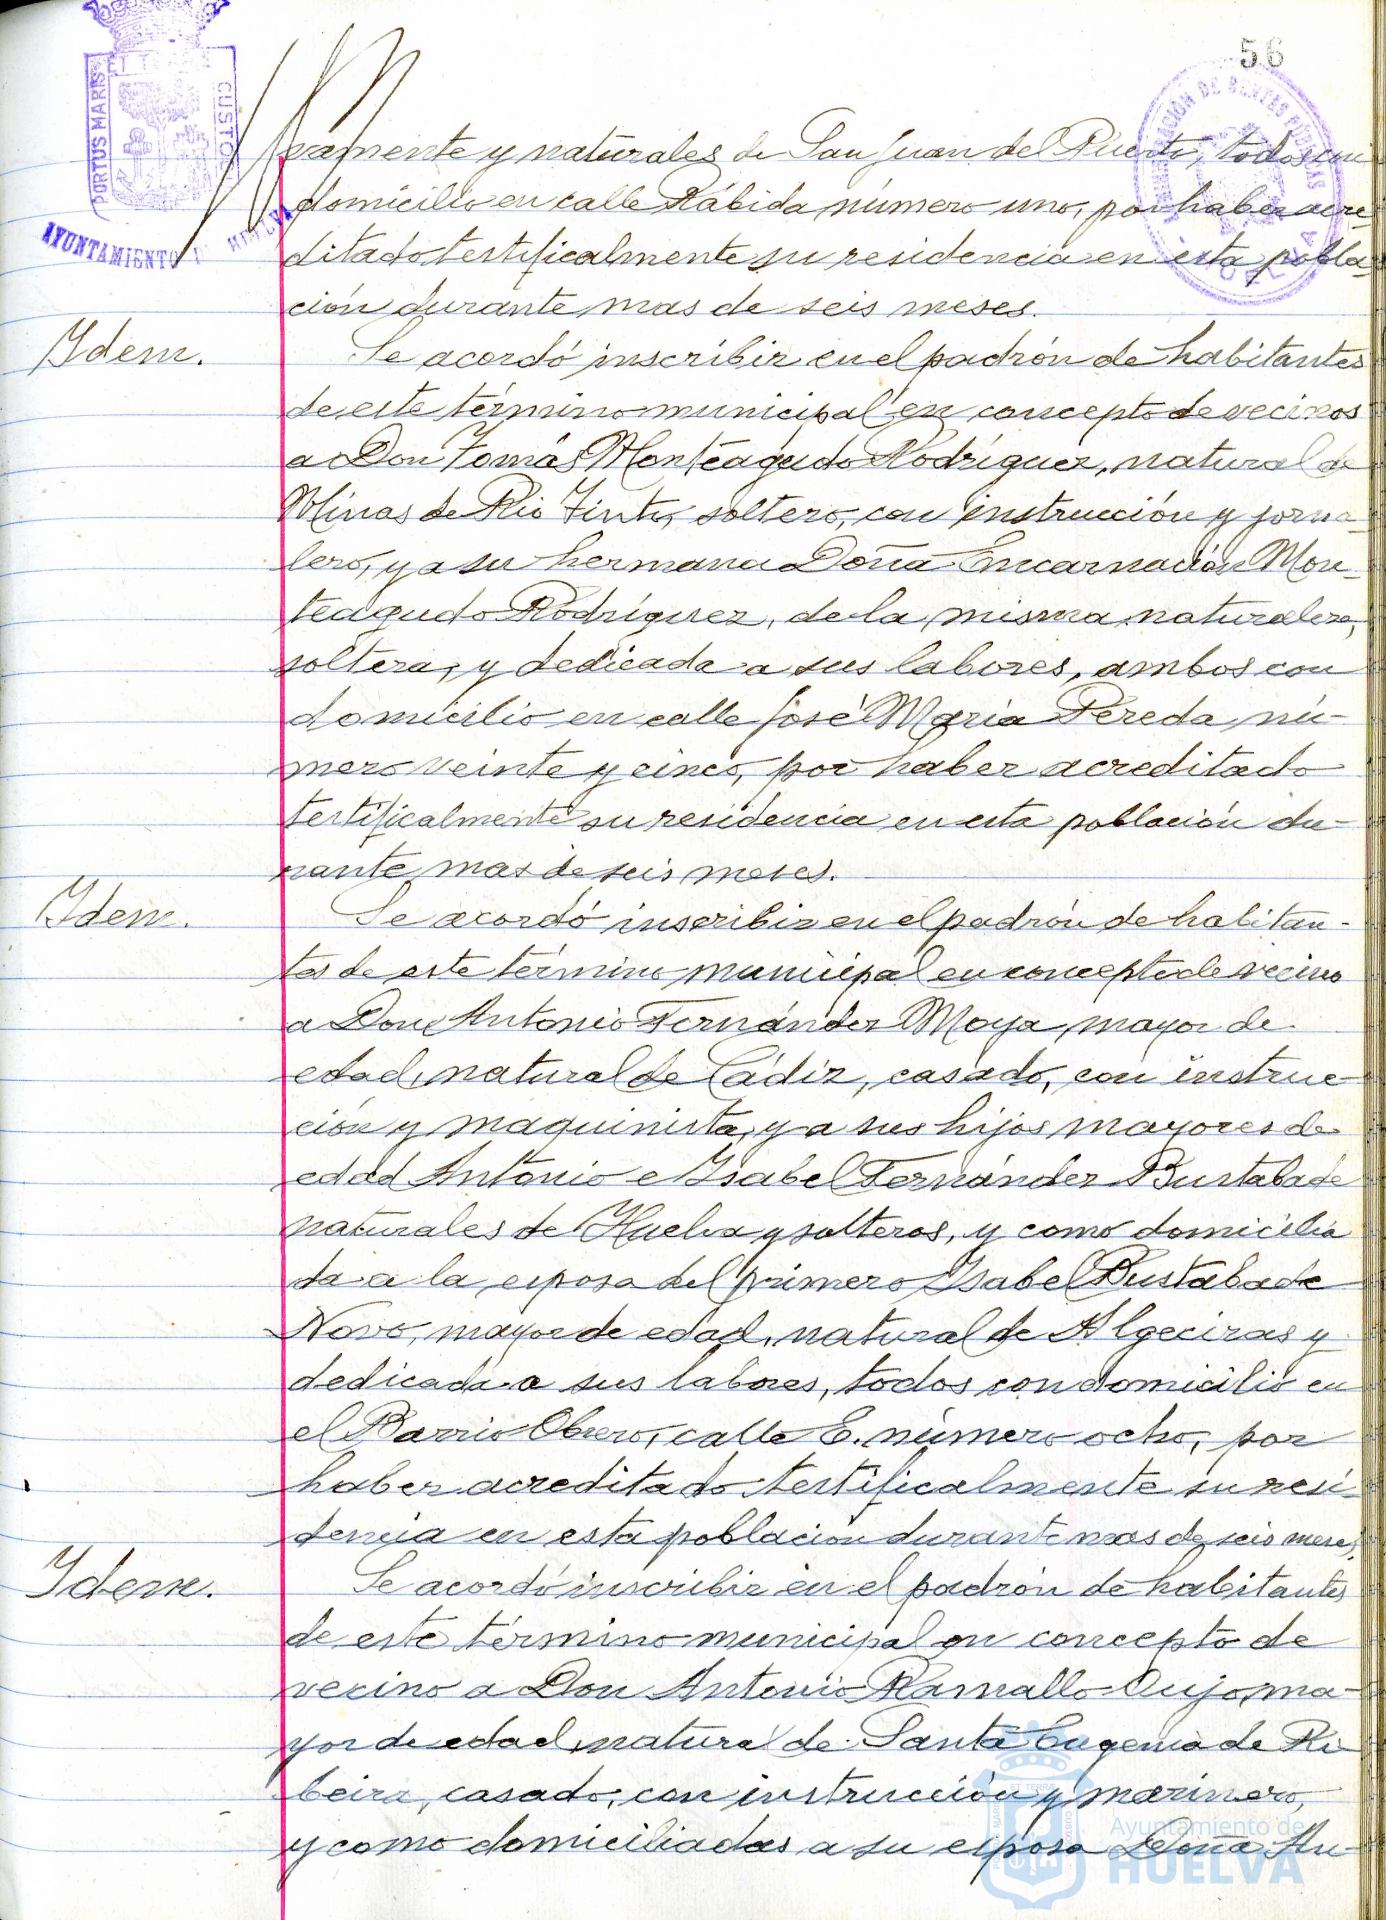 56
PORTUS MARIS ET TERRÆ CUSTODIA
AYUNTAMIENTO DE HUELVA
vamente y naturales de San Juan del Puerto, todos con
domicilio en calle Rábida número uno, por haber acre-
ditado testificalmente su residencia en esta pobla-
ción durante mas de seis meses.
Idem.
Se acordó inscribir en el padrón de habitantes
de este término municipal en concepto de vecinos
a Don Tomás Monteagudo Rodríguez, natural de
Minas de Rio Tinto, soltero, con instrucción y jorna-
lero, y a su hermana Doña Encarnación Mon-
teagudo Rodríguez, de la misma naturaleza,
soltera, y dedicada a sus labores, ambos con
domicilio en calle José María Pereda, nú-
mero veinte y cinco, por haber acreditado
testificalmente su residencia en esta población du-
rante mas de seis meses.
Idem.
Se acordó inscribir en el padrón de habitan-
tes de este término municipal en concepto de vecino
a Don Antonio Fernández Moya, mayor de
edad, natural de Cádiz, casado, con instruc-
ción y maquinista, y a sus hijos mayores de
edad Antonio e Isabel Fernández Bustabade
naturales de Huelva y solteros, y como domicilia
da a la esposa del primero Isabel Bustabade
Novo, mayor de edad, natural de Algeciras y
dedicada a sus labores, todos con domicilio en
el Barrio Obrero, calle E. número ocho, por
haber acreditado testificalmente su resi-
dencia en esta población durante mas de seis meses.
Idem.
Se acordó inscribir en el padrón de habitantes
de este término municipal en concepto de
vecino a Don Antonio Ramallo Oujo, ma-
yor de edad, natural de Santa Eugenia de Ri-
beira, casado, con instrucción y marinero,
y como domiciliadas a su esposa Doña Au-
Ayuntamiento de
HUELVA